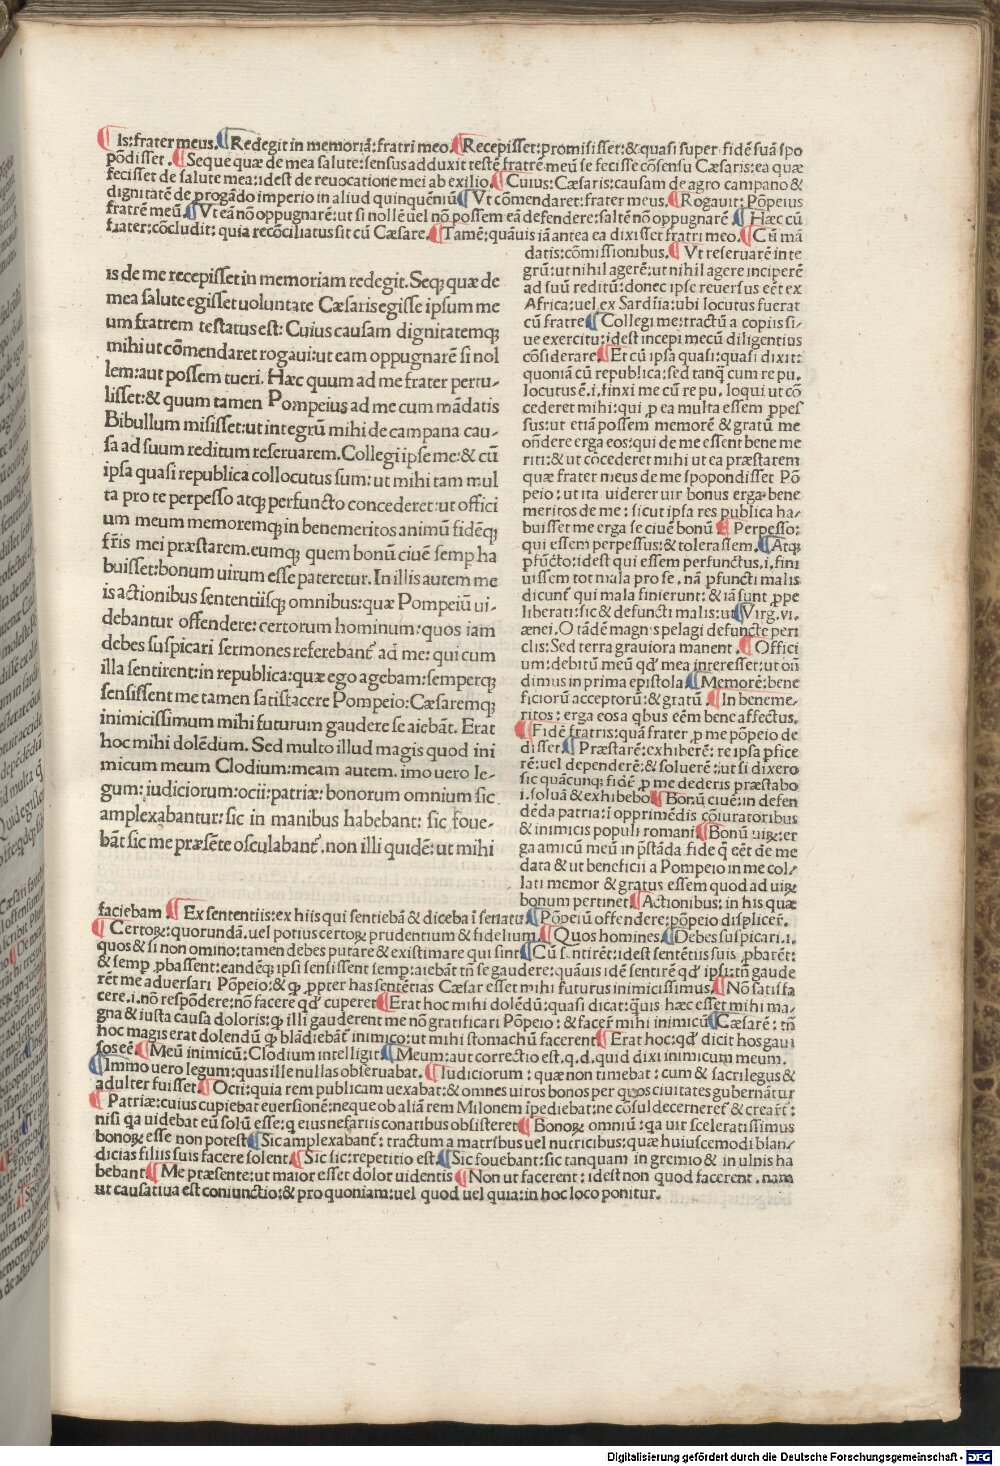 Is:frater meus. Redegit in memoriā:fratri meo. Recepisset:promisisset:&quasi super fidē suā spo
pōdisset. Seque quæ de mea salute:sensus adduxit testē fratrē meū se fecisse cōsensu Cæsaris:ea quæ
fecisset de salute mea:idest de reuocatione mei ab exilio. Cuius:Cæsaris:causam de agro campano &
dignitatē de progādo imperio in aliud quinquēniū Vt cōmendaret:frater meus. Rogauit:Pōpeius
fratrē meū. Vt eā nō oppugnarē:ut si nollē uel nō possem eā defendere:saltē nō oppugnarē. Hæc cū
frater:cōcludit: quia recōciliatus sit cū Cæsare. Tamē:quāuis iā antea ea dixisset fratri meo. Cū mā
datis:cōmissionibus. Vt reseruarē inte
grū:ut nihil agerē:ut nihil agere inciperē
ad suū reditū:donec ipse reuersus eēt ex
Africa:uel ex Sardīia:ubi locutus fuerat
cū fratre Collegi me:tractū a copiis si-
ue exercitu:idest incepi mecū diligentius
cōsiderare. Et cū ipsa quasi:quasi dixit:
quoniā cū republica:sed tanq̄ cum re pu.
locutus ē.i.finxi me cū re pu. loqui ut cō
cederet mihi:qui p ea multa essem ppes
sus:ut etiā possem memorē & gratū me
ōndere erga eos:qui de me essent bene me
riti:& ut cōcederet mihi ut ea præstarem
quæ frater meus de me spopondisset Pō
peio:ut ita uiderer uir bonus erga bene
meritos de me: sicut ipsa res publica ha-
buisset me erga se ciuē bonū Perpesso:
qui essem perpessus:& tolerassem. Atq;
pfūcto:idest qui essem perfunctus.i.fini
uissem tot mala pro se. nā pfuncti malis
dicunť qui mala finierunt:& iā sunt ppe
liberati:sic & defuncti malis:ut Virg.vi.
ænei. O tādē magnis pelagi defuncte peri
clis:Sed terra grauiora manent. Offici
um:debitū meū qď mea interesset:ut oñ
dimus in prima epistola. Memorē:bene
ficiorū acceptorū:& gratū. In beneme-
ritos: erga eos a qbus eēm bene affectus.
Fidē fratris:quā frater p me pōpeio de
disset. Præstarē:exhiberē: re ipsa pfice
rē:uel dependerē:& soluerē:ut si dixero
sic quācunq; fidē p me dederis præstabo
i.soluā & exhibebo. Bonū ciuē:in defen
dēda patria:i opprimēdis cōiuratoribus
& inimicis populi romani Bonū uiꝝ:er
ga amicū meū in pstāda fide q eēt de me
data & ut beneficii a Pompeio in me col-
lati memor & gratus essem quod ad uiꝝ
bonum pertinet. Actionibus:in his quæ
is de me recepisset in memoriam redegit. Seq; quæ de
mea salute egisset uoluntate Cæsaris egisse ipsum me
um fratrem testatus est: Cuius causam dignitatemq;
mihi ut cōmendaret rogaui:ut eam oppugnarē si nol
lem:aut possem tueri. Hæc quum ad me frater pertu-
lisset:& quum tamen Pompeius ad me cum mādatis
Bibullum misisset:ut integrū mihi de campana cau-
sa ad suum reditum reseruarem. Collegi ipse me:& cū
ipsa quasi republica collocutus sum: ut mihi tam mul
ta pro te perpesso atq; perfuncto concederet:ut offici
um meum memoremq; in benemeritos animū fidēq;
fr̄is mei præstarem.eumq; quem bonū ciuē semp ha
buisset:bonum uirum esse pateretur. In illis autem me
is actionibus sententiisq; omnibus:quæ Pompeiū ui-
debantur offendere: certorum hominum:quos iam
debes suspicari sermones referebanť ad me: qui cum
illa sentirent:in republica:quæ ego agebam:semperq;
sensissent me tamen satisfacere Pompeio:Cæsaremq;
inimicissimum mihi futurum gaudere se aiebāt. Erat
hoc mihi dolēdum. Sed multo illud magis quod ini
micum meum Clodium:meam autem. imo uero le-
gum: iudiciorum:ocii:patriæ: bonorum omnium sic
amplexabantur: sic in manibus habebant: sic foue-
bāt sic me præsēte osculabanť.non illi quidē:ut mihi
faciebam. Ex sententiis:ex hiis qui sentiebā & diceba ī senatu Pōpeiū offendere:pōpeio displicer̄.
Certoꝝ:quorundā.uel potius certoꝝ prudentium & fidelium. Quos homines. Debes suspicari.i.
quos & si non omino:tamen debes putare & existimare qui sint. Cū sentirēt:idest sentētiis suis pbarēt:
& semp pbassent:eandēq; ipsi sensissent semp:aiebāt tn̄ se gaudere:quāuis idē sentirē qď ipsi:tn̄ gaude
rēt me aduersari Pōpeio:& q ppter has sentētias Cæsar esset mihi futurus inimicissimus. Nō satisfa
cere.i.nō respōdere:nō facere qď cuperet Erat hoc mihi dolēdū:quasi dicat:quis hæc esset mihi ma-
gna & iusta causa doloris:q illi gauderent me nō gratificari Pōpeio: & facer̄ mihi inimicū Cæsarē: tn̄
hoc magis erat dolendū q blādiebāť inimico:ut mihi stomachū facerent Erat hoc:qď dicit hos gaui
sos eē. Meū inimicū:Clodium intelligit Meum:aut correctio est.q.d.quid dixi inimicum meum.
Immo uero legum:quas ille nullas obseruabat. Iudiciorum: quæ non timebat: cum & sacrilegus &
adulter fuisset. Ocii:quia rem publicam uexabat:& omnes uiros bonos per quos ciuitates gubernātur
Patriæ:cuius cupiebat euersionē:neque ob aliā rem Milonem īpediebat:ne cōsul decernereť & crearť:
nisi qa uidebat eū solū esse:q eius nefariis conatibus obsisteret Bonoꝝ omniū:qa uir sceleratissimus
bonoꝝ esse non potest Sic amplexabanť: tractum a matribus uel nutricibus:quæ huiuscemodi blan-
dicias filiis suis facere solent. Sic sic:repetitio est. Sic fouebant:sic tanquam in gremio & in ulnis ha
bebant. Me præsente:ut maior esset dolor uidentis Non ut facerent: idest non quod facerent. nam
ut causatiua est coniunctio:& pro quoniam:uel quod uel quia:in hoc loco ponitur.
Digitalisierung gefördert durch die Deutsche Forschungsgemeinschaft - DFG